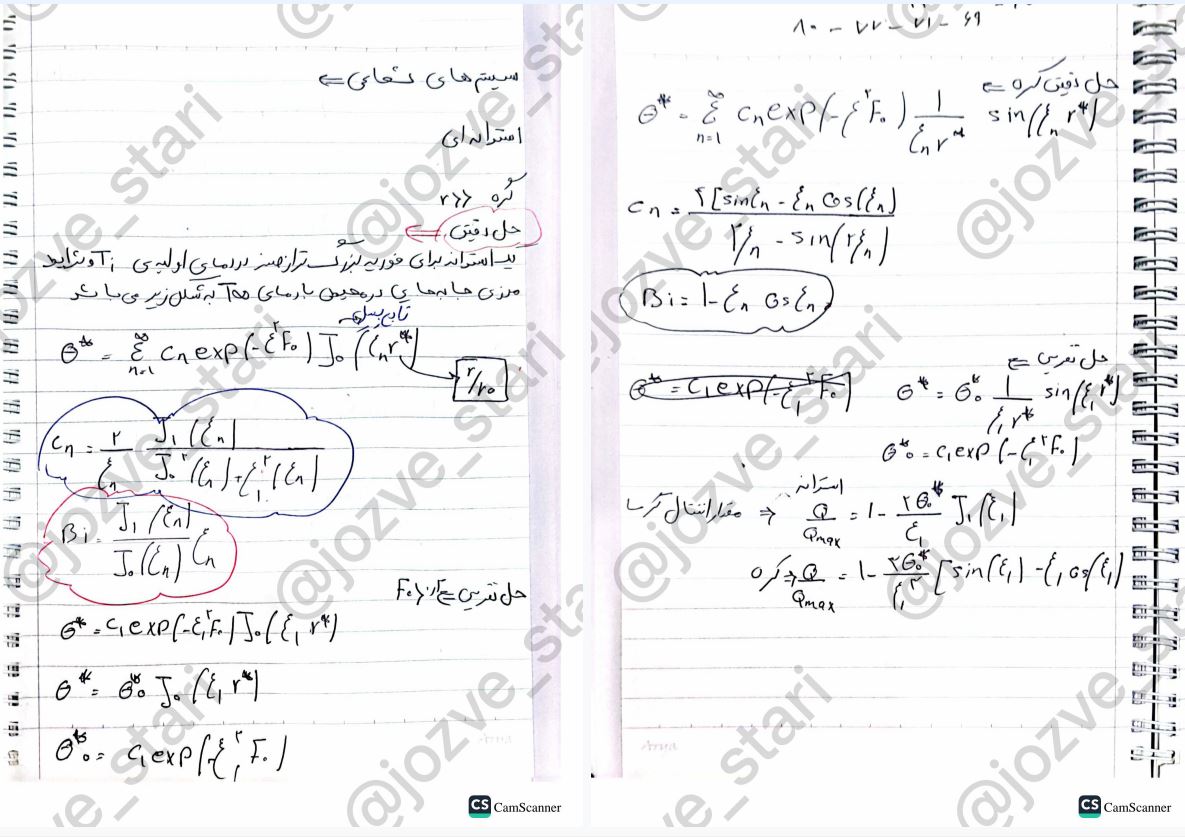 سیستم‌های شعاعی ⇐
استوانه‌ای
کره r>>
حل دقیق ⇐
یک استوانه برای فوریه بزرگ‌تر از صفر در دمای اولیه‌ی Ti و شرایط
مرزی جابه‌جایی در محیطی با دمای T∞ به شکل زیر می‌باشد
تابع بسل
θ* = Σ_{n=1}^{∞} Cn exp(-ξ²F₀) J₀(ξn r*)
r/r₀
Cn = ۲/ξn J₁(ξn) / J₀²(ξn)+ξ₁²(ξn)
Bi = J₁(ξn)/J₀(ξn) ξn
حل تقریبی ⇐ F₀>۰/۲
θ* = C₁ exp(-ξ₁²F₀) J₀(ξ₁ r*)
θ* = θ₀* J₀(ξ₁ r*)
θ₀* = C₁ exp(-ξ₁² F₀)
CS CamScanner
۶۹ - ۷۱ - ۷۷ - ۸۰
حل دقیق کره ⇐
θ* = Σ_{n=1}^{∞} Cn exp(-ξ²F₀) 1/ξn r* sin(ξn r*)
Cn = ۴[sinξn - ξn cos(ξn)] / ۲ξn - sin(۲ξn)
Bi = 1-ξn cosξn
حل تقریبی ⇐
θ* = C₁ exp(-ξ₁² F₀) θ* = θ₀* 1/ξ₁ r* sin(ξ₁ r*)
θ₀* = C₁ exp(-ξ₁² F₀)
استوانه
مقدار انتقال گرما ⇒ Q/Qmax = 1- ۲θ₀*/ξ₁ J₁(ξ₁)
کره ⇒ Q/Qmax = 1- ۳θ₀*/ξ₁³ [sin(ξ₁) - ξ₁ cos(ξ₁)]
Arya
CS CamScanner
@jozve_stari